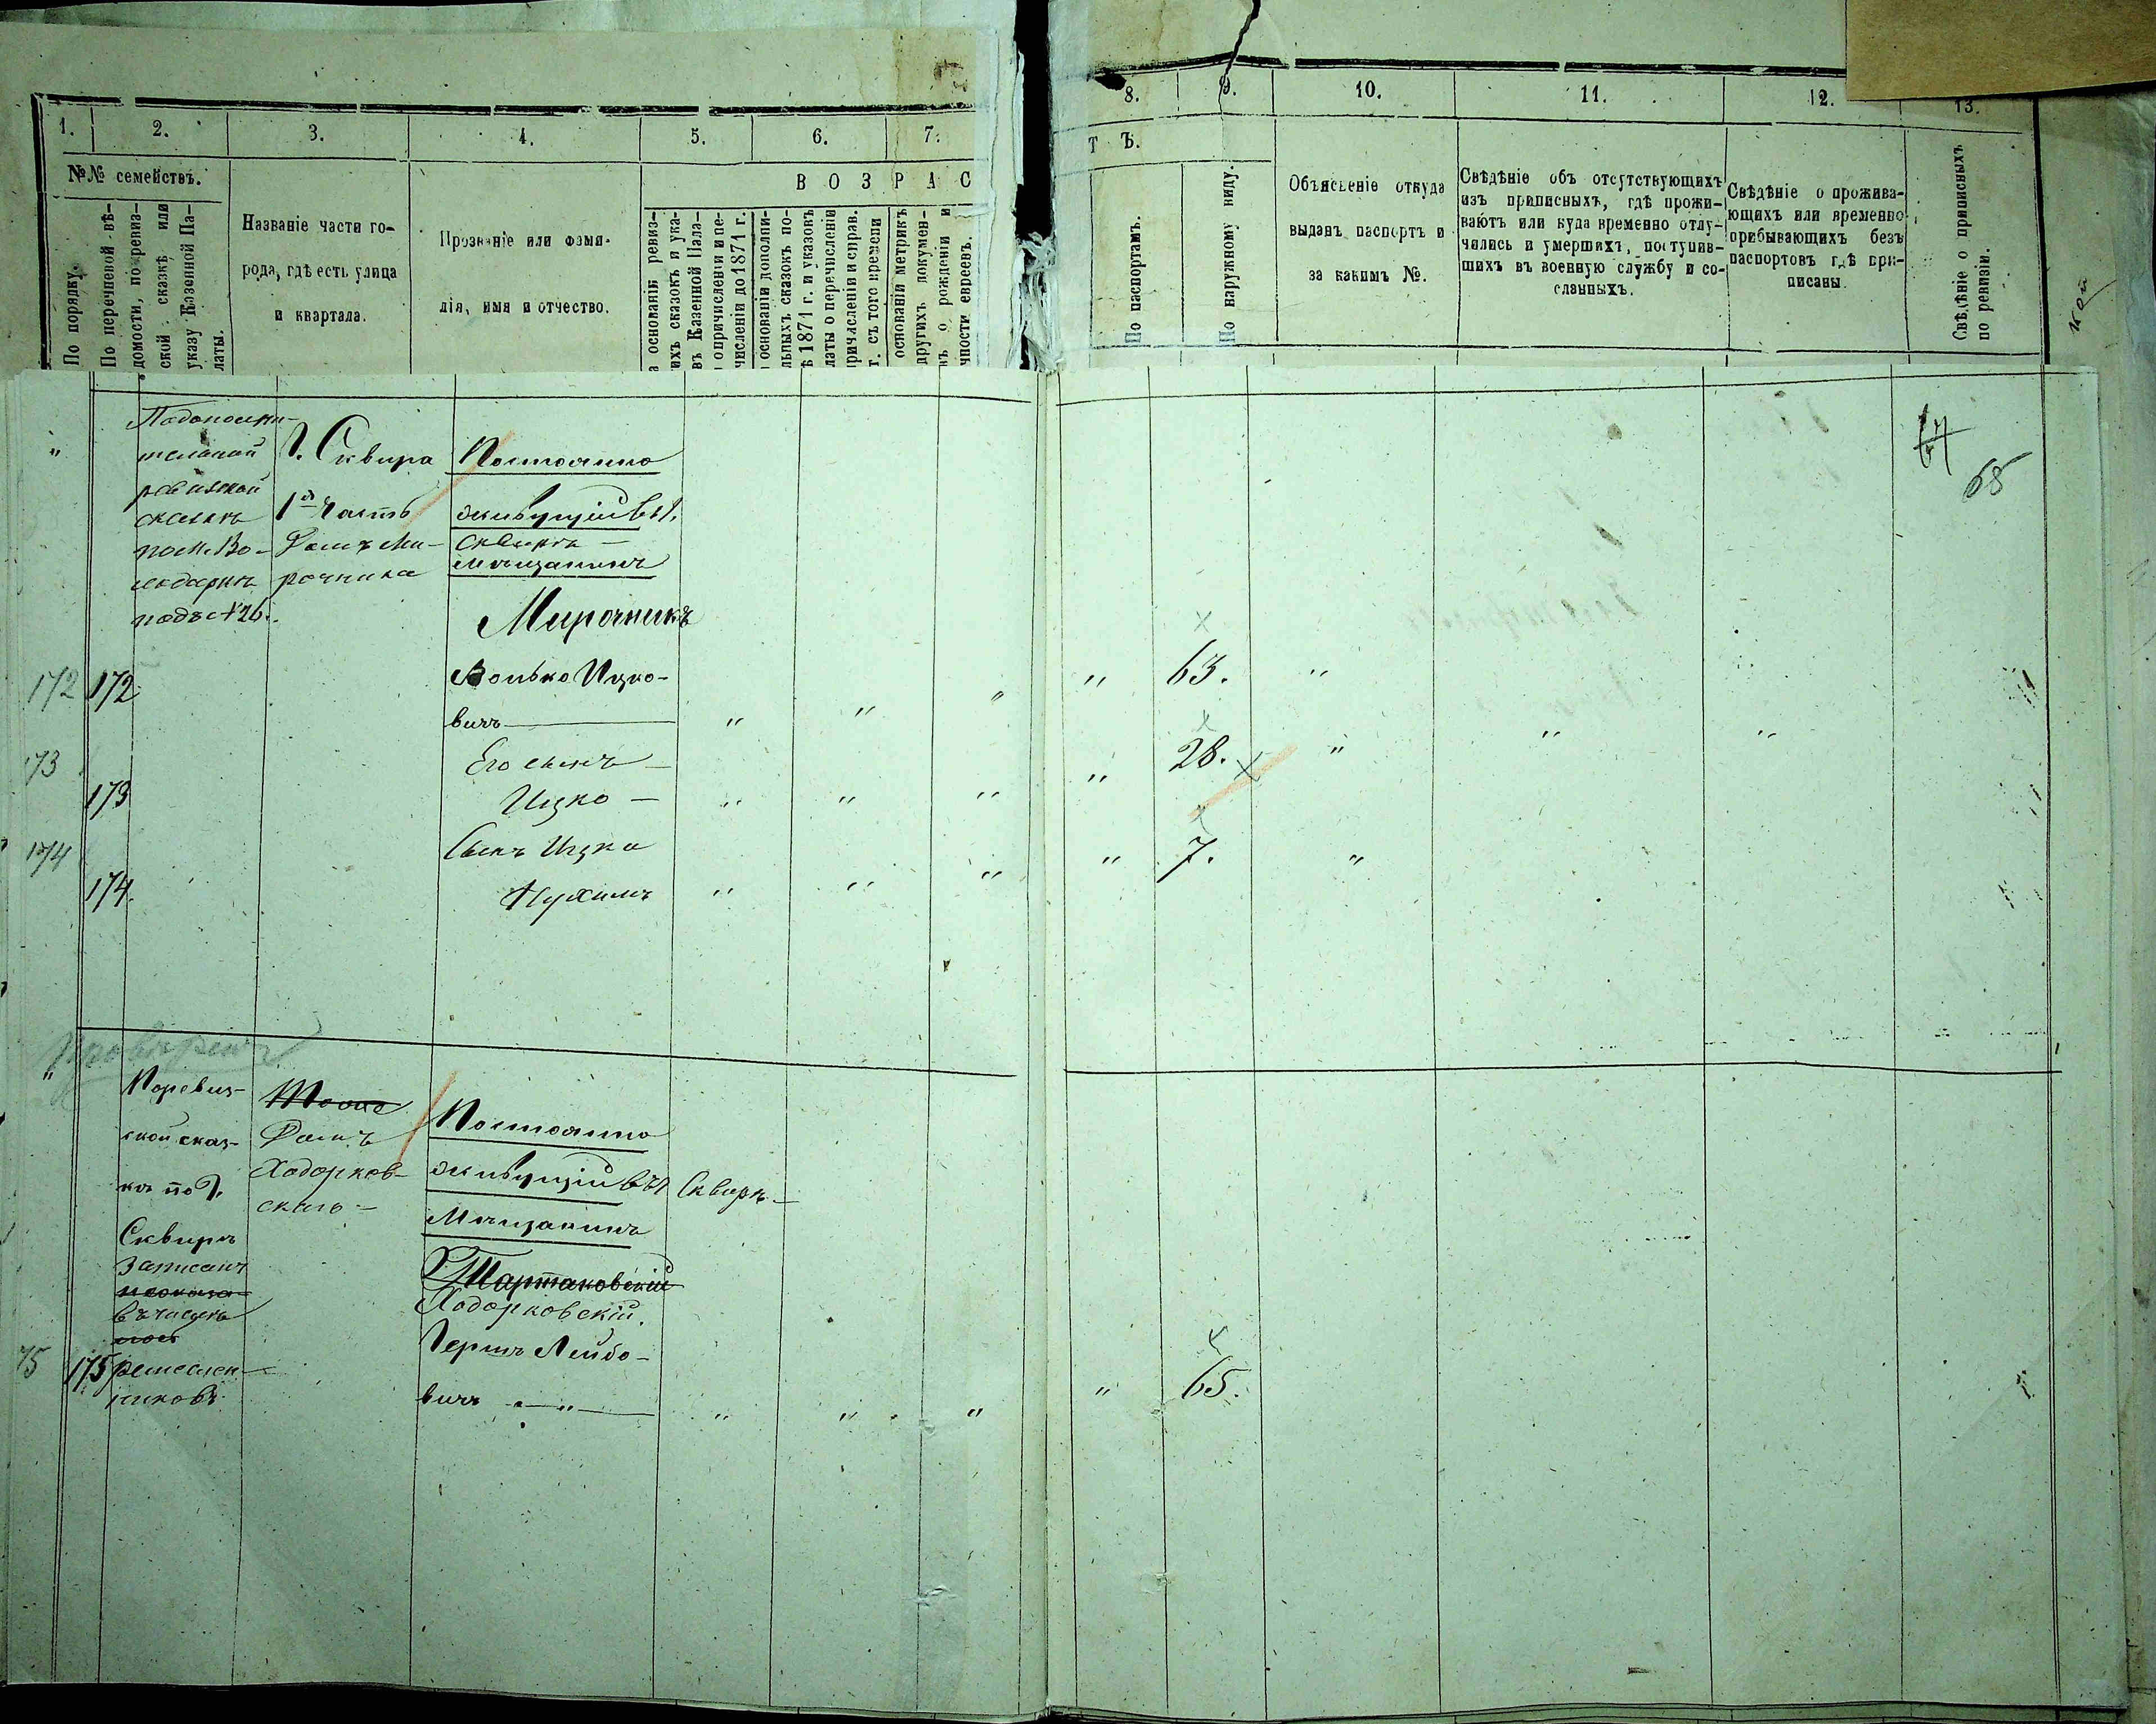 1. 2. 3. 4. 5. 6. 7. 8. 9. 10. 11. 12. 13.
№№ семействъ.
По порядку.
По перечневой вѣ-
домости, по ревиз-
ской сказкѣ или
указу Казенной Па-
латы.
Названіе части го-
рода, гдѣ есть улица
и квартала.
Прозваніе или фами-
лія, имя и отчество.
В О З Р А С Т Ъ.
а основаніи ревиз-
ихъ сказокъ и ука-
въ Казенной Пала-
о причисленіи и пе-
численіи до 1871 г.
основаніи дополни-
льныхъ сказокъ по-
ѣ 1871 г. и указовъ
латы о перечисленіи
причисленіи и справ.
г. съ того времени
основаніи метрикъ
другихъ докумен-
въ о рожденіи и
чности евреевъ.
По паспортамъ.
По наружному виду.
Объясненіе откуда
выданъ паспортъ и
за какимъ №.
Свѣдѣніе объ отсутствующихъ
изъ приписныхъ, гдѣ прожи-
ваютъ или куда временно отлу-
чились и умершихъ, поступив-
шихъ въ военную службу и со-
сланныхъ.
Свѣдѣніе о прожива-
ющихъ или временно
прибывающихъ безъ
паспортовъ гдѣ при-
писаны.
Свѣдѣніе о приписныхъ
по ревизіи.
67
68
По дополни-
тельной
ревизской
сказкѣ
по м. Во-
лодаркѣ
подъ №26.
Г. Сквира
1я Часть
Домъ Ми-
рочника
Постоянно
живущій въ г.
Сквирѣ
Мѣщанинъ
Мирочникъ
172 172 Волько Ицко-
вичъ " " " " 63. "
173 173 Его сынъ
Ицко " " " " 28. " " "
174 174. Сынъ Ицка
Нухимъ " " " " 7. "
Провѣренъ
По ревиз-
ской сказ-
кѣ по г.
Сквирѣ
Записанъ
въ числѣ
ремеслен-
никовъ
Домъ
Ходорков-
скаго
Постоянно
живущій въ г. Сквирѣ
Мѣщанинъ
Тартаковскій
Ходорковскій.
75 175 Гершъ Лейбо-
вичъ " " " " " 65.